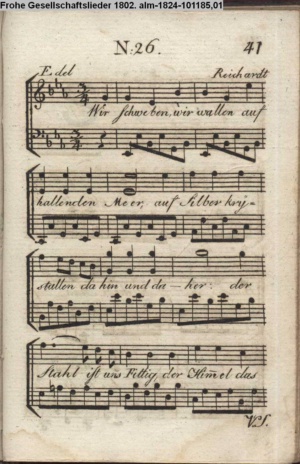 Frohe Gesellschaftslieder 1802. alm-1824-101185,01
N: 26. 41
Edel Reichardt
Wir schweben, wir wallen auf
hallenden Meer, auf Silber kry-
stallen dahin und da - her: der
Stahl ist uns Fittig der Him̅el das
V.S.